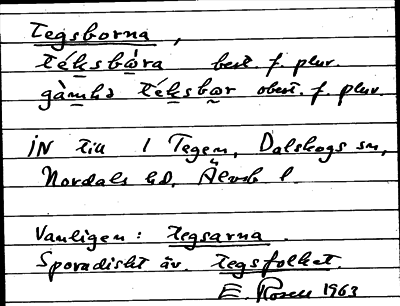 Tegsborna,
téksbòra best. f. plur.
gàmḷə téksbor obest. f. plur.
iN till 1 Tegen, Dalskogs sn,
Nordals hd, Älvsb l.
Vanligen: tegsarna.
Sporadiskt äv. tegsfolket.
E. Rosell 1963